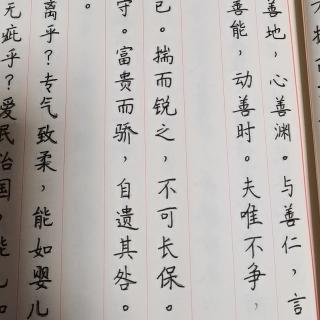 善地，心善渊。与善仁，言
善能，动善时。夫唯不争，
已。揣而锐之，不可长保。
守。富贵而骄，自遗其咎。
。
离乎？专气致柔，能如婴儿
无疵乎？爱民治国，能